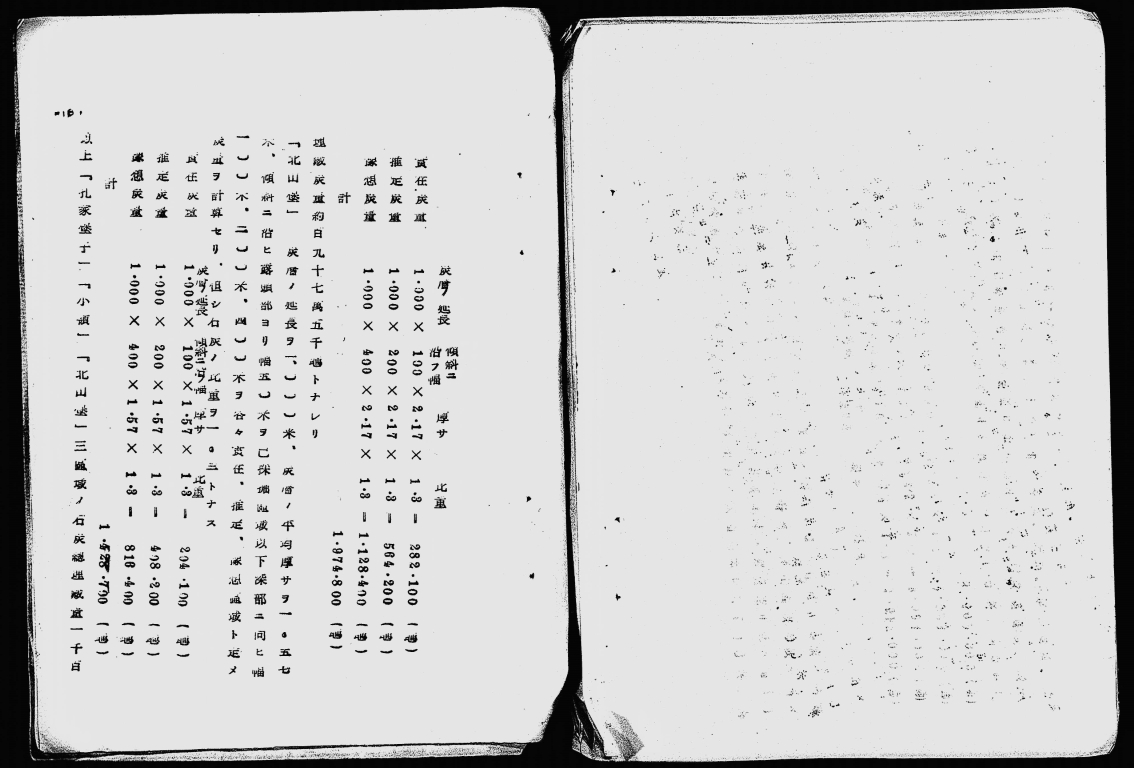 炭層ノ延長 傾斜ニ沿フ幅 厚サ 比重
責任炭量 1.000 × 100 × 2.17 × 1.3 = 282.100 (噸)
推定炭量 1.000 × 200 × 2.17 × 1.3 = 564.200 (噸)
豫想炭量 1.000 × 400 × 2.17 × 1.3 = 1.128.400 (噸)
計 1.974.800 (噸)
埋蔵炭量約百九十七萬五千噸トナレリ
「北山堡」 炭層ノ延長ヲ一、〇〇〇米、炭層ノ平均厚サヲ一。五七
米、傾斜ニ沿ヒ露頭部ヨリ幅五〇米ヲ已採掘區域以下深部ニ向ヒ幅
一〇〇米、二〇〇米、四〇〇米ヲ各々責任、推定、豫想區域ト定メ
炭量ヲ計算セリ、但シ石炭ノ比重ヲ一。三トナス
炭層ノ延長 傾斜ニ沿フ幅 厚サ 比重
責任炭量 1.000 × 100 × 1.57 × 1.3 = 204.100 (噸)
推定炭量 1.000 × 200 × 1.57 × 1.3 = 408.200 (噸)
豫想炭量 1.000 × 400 × 1.57 × 1.3 = 816.400 (噸)
計 1.428.700 (噸)
以上「孔家堡子」「小嶺」「北山堡」三區域ノ石炭總埋藏量一千百
-16-